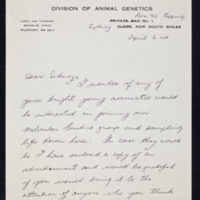 DIVISION OF ANIMAL GENETICS
Box 90 Epping
PRIVATE BAG No. 1
Sydney GLEBE, NEW SOUTH WALES
April 2nd
Dear Sydney,
I wonder if any of
your bright young associates would
be interested in joining our
molecular Genetics group and sampling
life down here. In case they might
be I have enclosed a copy of an
advertisement and would be grateful
if you would bring it to the
attention of anyone who you think